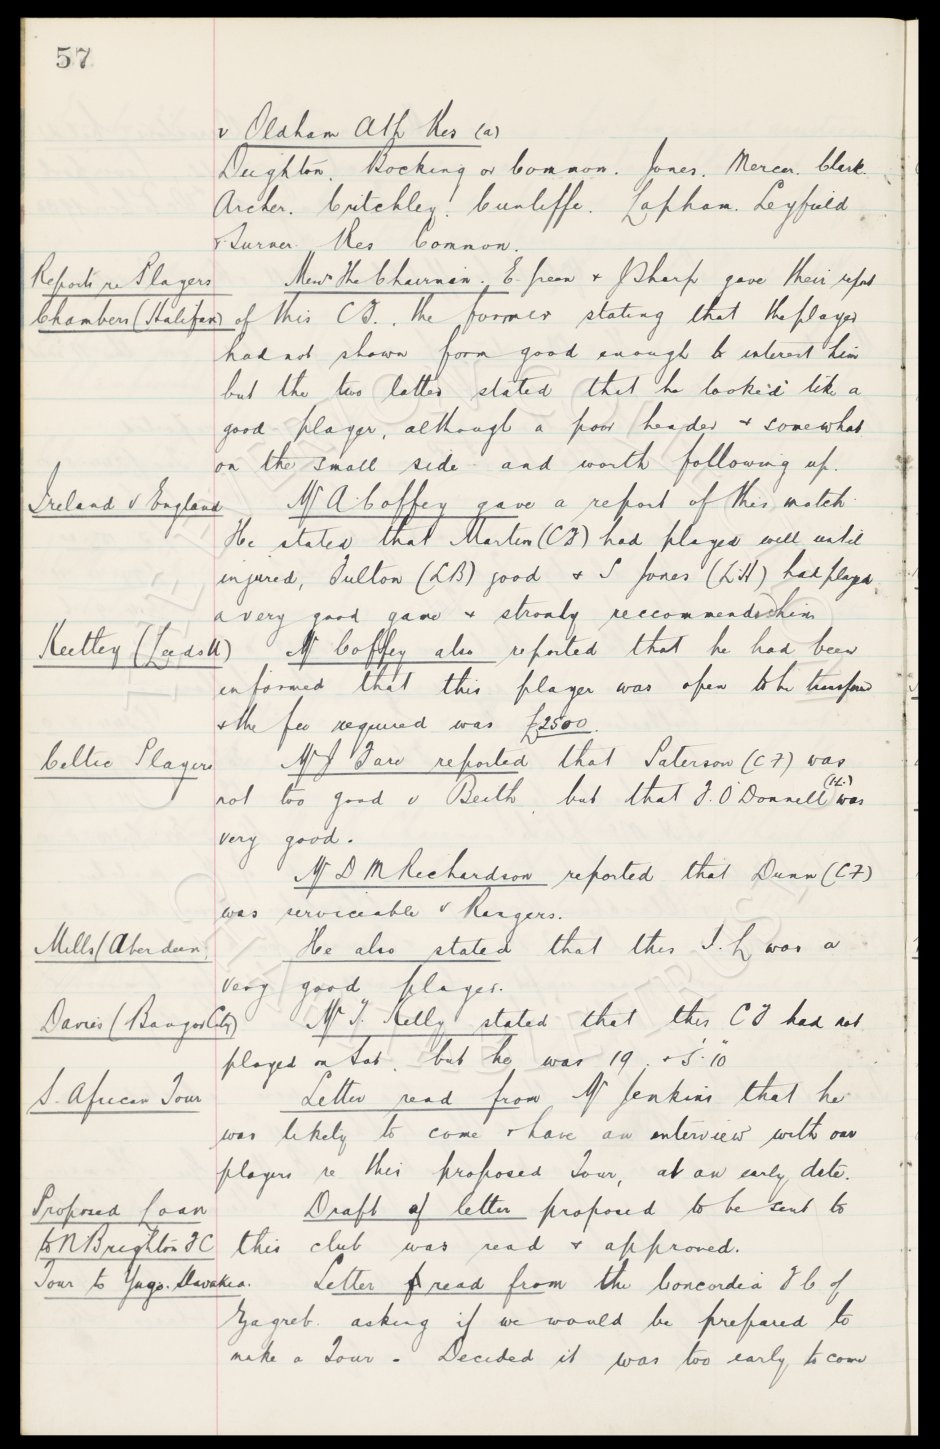 57
v Oldham Ath Res (a)
Deighton. Bocking or Common. Jones. Mercer. Clark.
Archer. Critchley. Cunliffe. Lapham. Leyfield
& Turner. Res Common.
Reports re Players Messrs The Chairman. E. Green & J Sharp gave their report
Chambers (Halifax) of this CF., the former stating that the player
had not shown form good enough to interest him
but the two latter stated that he looked like a
good player, although a poor header & somewhat
on the small side and worth following up.
Ireland v England Mr A Coffey gave a report of this match.
He stated that Martin (CF) had played well until
injured, Fulton (LB) good & S Jones (LH) had played
a very good game & stronly reccommended him
Keetley (Leeds U) Mr Coffey also reported that he had been
informed that this player was open to be transfered
& the fee required was £2500.
Celtic Players Mr J Fare reported that Paterson (CF) was
not too good v Beith, but that F. O'Donnell (IL) was
very good.
Mr D M Richardson reported that Dunn (CF)
was serviceable v Rangers.
Mills (Aberdeen) He also stated that this I.L was a
very good player.
Davies (Bangor City) Mr T. Kelly stated that this CF had not
played on Sat. but he was 19. & 5' 10"
S. African Tour Letter read from Mr Jenkins that he
was likely to come & have an interview with our
players re this proposed Tour, at an early date.
Proposed Loan Draft of letter proposed to be sent to
to N Brighton FC this club was read & approved.
Tour to Yugo. Slavakia. Letter read from the Concordia FC of
Zagreb. asking if we would be prepared to
make a Tour - Decided it was too early to come